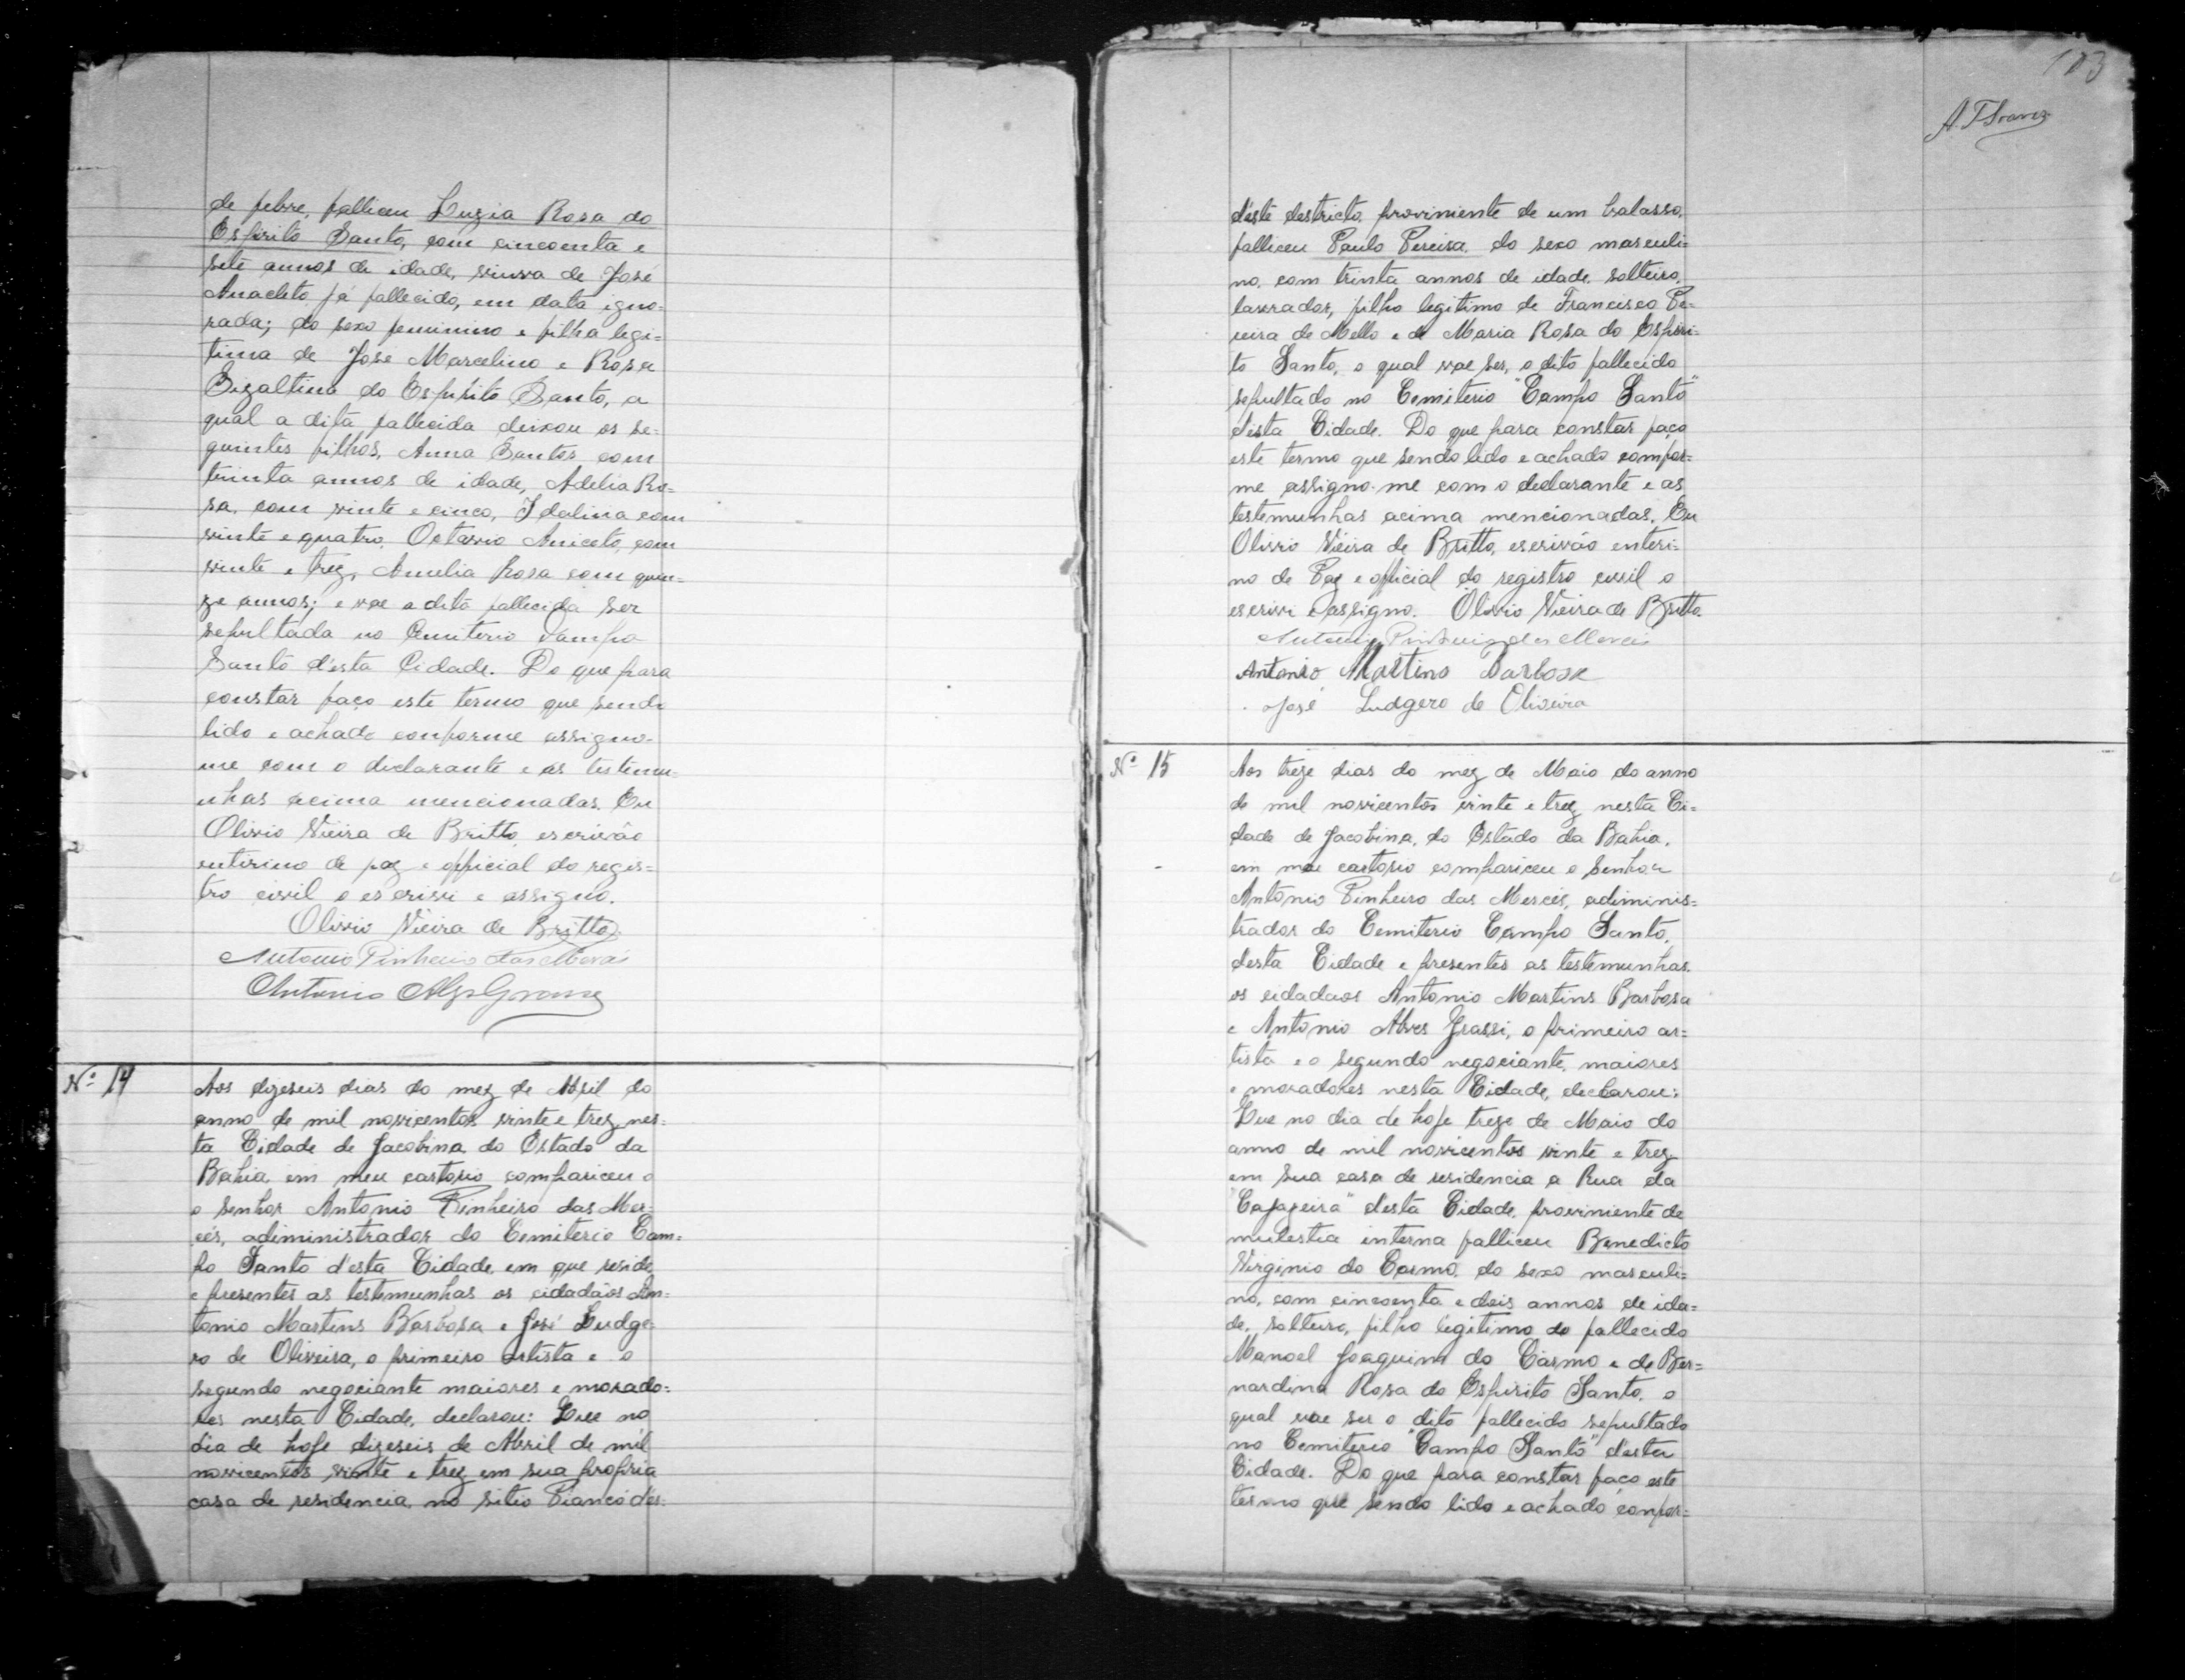 de febre, falliceu Luzia Rosa do
Espirito Santo, com cincoenta e
sete annos de idade, viuva de José
Anacleto já fallecido, em data igno-
rada; do sexo feminino e filha legi-
tima de José Marcelino e Rosa
do Espirito Santo, a
qual a dita fallecida deixou os se-
guintes filhos, Anna Santos com
trinta annos de idade, Adelia Ro-
sa, com vinte e cinco, Idalina com
vinte e quatro, Octavio Aniceto, com
vinte e trez, Amelia Rosa com quin-
ze annos; e vae a dita fallecida ser
sepultada no Cemiterio Campo
Santo d'esta Cidade. Do que para
constar faço este termo que sendo
lido e achado conforme assigno-
me com o declarante e as testemu-
nhas acima mencionadas. Eu
Olivio Vieira de Britto, escrivão
entirino de paz e official do regis-
tro civil o escrivi e assigno.
Olivio Vieira de Britto
Antonio Pinheiro das Mercês
Antonio
Nº 14
Aos dizeseis dias do mez de Abril do
anno de mil novicentos vinte e trez, nes-
ta Cidade de Jacobina do Estado da
Bahia, em meu cartorio compariceu o
o senhor Antonio Pinheiro das Mer-
cês, adiministrador do Cemiterio Cam-
po Santo d'esta Cidade, em que reside
e presentes as testemunhas os cidadãos An-
tonio Martins Barbosa e José Ludge-
ro de Oliveira, o primeiro artista e o
segundo negociante maiores e morado-
res nesta Cidade, declarou: Que no
dia de hoje dizeseis de Abril de mil
novicentos vinte e trez em sua propria
casa de residencia, no sitio Piancó d'es-
103
d'este destricto, proviniente de um
falliceu Paulo Pereira, do sexo masculi-
no, com trinta annos de idade, solteiro,
lavrador, filho legitimo de Francisco Pe-
reira de Mello e de Maria Rosa do Espiri-
to Santo, o qual vae ser, o dito fallecido
sepultado no Cemiterio "Campo Santo"
desta Cidade. Do que para constar faço
este termo que sendo lido e achado confor-
me assigno-me com o declarante e as
testemunhas acima mencionadas. Eu
Olivio Vieira de Britto, escrivão enteri-
no de Paz e official do registro civil o
escrivi e assigno. Olivio Vieira de Britto.
Antonio Pinheiro das Mercês
Antonio Martins Barbosa
José Ludgero de Oliveira
Nº 15
Aos treze dias do mez de Maio do anno
de mil novicentos vinte e trez, nesta Ci-
dade de Jacobina, do Estado da Bahia,
em meu cartorio compariceu o Senhor
Antonio Pinheiro das Mercês, adiminis-
trador do Cemiterio Campo Santo,
desta Cidade e presentes as testemunhas,
os cidadaos Antonio Martins Barbosa
e Antonio Alves Grassi, o primeiro ar-
tista e o segundo negociante, maiores
e moradores nesta Cidade, declarou:
Que no dia de hoje treze de Maio do
anno de mil novicentos vinte e trez
em sua casa de residencia a Rua da
"Cajazeira" desta Cidade, proviniente de
mulestia interna falliceu Benedicto
Virginio do Carmo, do sexo masculi-
no, com cincoenta e dois annos de ida-
de, solteiro, filho legitimo do fallecido
Manoel Joaquim do Carmo e de Ber-
nardina Rosa do Espirito Santo, o
qual vae ser o dito fallecido sepultado
no Cemiterio "Campo Santo" d'esta
Cidade. Do que para constar faço este
termo que sendo lido e achado confor-